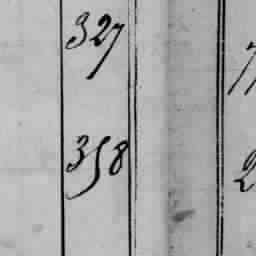 327
358